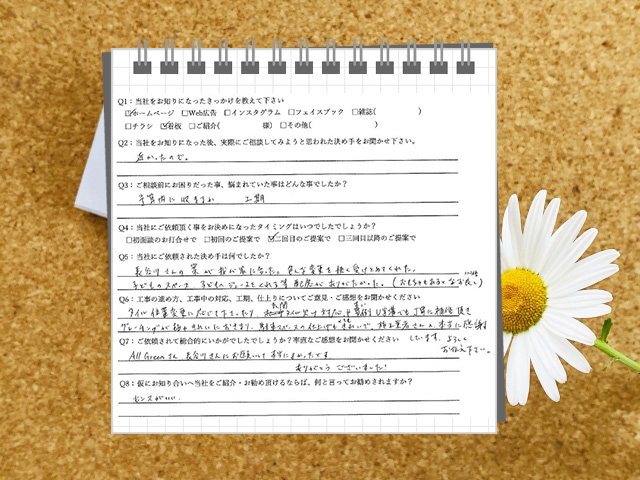 Q1：当社をお知りになったきっかけを教えて下さい
☑ホームページ □Web広告 □インスタグラム □フェイスブック □雑誌( )
□チラシ ☑看板 □ご紹介( 様) □その他( )
Q2：当社をお知りになった後、実際にご相談してみようと思われた決め手をお聞かせ下さい。
近かったので。
Q3：ご相談前にお困りだった事、悩まれていた事はどんな事でしたか？
予算内に収まるか 工期
Q4：当社にご依頼頂く事をお決めになったタイミングはいつでしたでしょうか？
□初面談のお打合せで □初回のご提案で ☑二回目のご提案で □三回目以降のご提案で
Q5：当社にご依頼された決め手は何でしたか？
長谷川さんの案が我が家に合った。色んな変更を快く受けとめてくれた。
子どものスペース、子どもの
くれる等 配慮がありがたかった。
Q6：工事の進め方、工事中の対応、工期、仕上りについてご意見・ご感想をお聞かせください
タイル 変更に応じて下さったり 対応、 丁寧に補修頂き
グレーチングが きれいに おさまり、駐車スペースの仕上げもきれいで、 本当に感謝
Q7：ご依頼されて総合的にいかがでしたでしょうか？率直なご感想をお聞かせください
しています。よろしく
お伝え下さい。
All Greenさん、長谷川さんにお願いして 本当によかったです
ありがとう ございました！
Q8：仮にお知り合いへ当社をご紹介・お勧め頂けるならば、何と言ってお勧めされますか？
センスがいい.